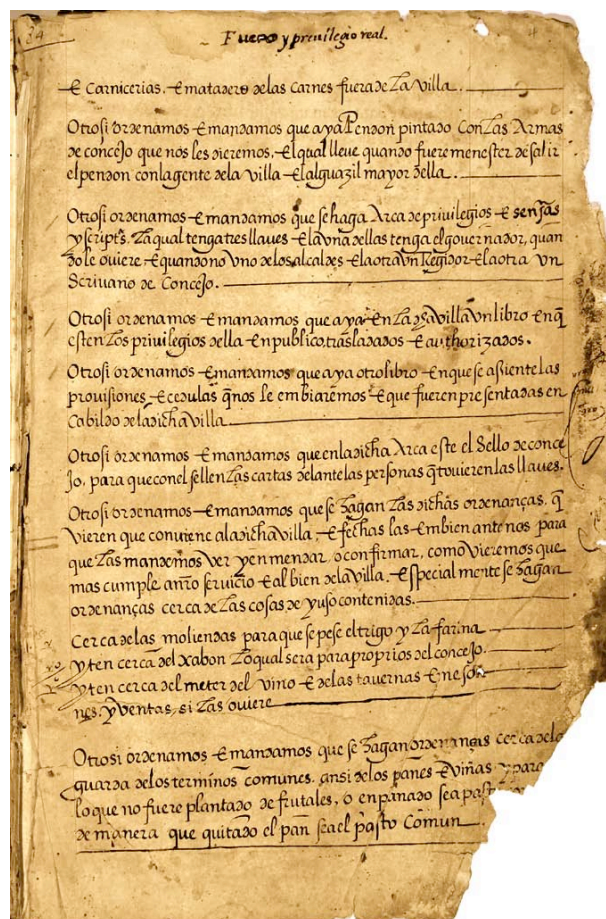 Fuero y preuilegio real.
E Carnicerias. E matadero delas Carnes fuera de La villa.
Otrosi ordenamos E mandamos que aya Pendon pintado Con Las Armas
de concejo que nos les dieremos. El qual lleue quando fuere menester de salir
el pendon con la gente dela villa El alguazil mayor della.
Otrosi ordenamos E mandamos que se haga Arca de priuilegios E sen͂jas
y scripts. La qual tenga tres llaues E la vna dellas tenga el gouernador, quan
do le ouiere E quando no Vno de los alcaldes E la otra Vn Regidor E la otra Vn
Scriuano de Concejo.
Otrosi ordenamos E mandamos que aya En La dha Villa Vn libro En q̃
esten Los priuilegios della En publico, trasladados E authorizados.
Otrosi ordenamos E mandamos que aya otro libro En que se asiente las
prouisiones, E cedulas q̃ nos le embiaremos E que fueren presentadas en
Cabildo dela dicha villa
Otrosi ordenamos E mandamos que en la dicha Arca este el Sello de conce
jo, para que con el sellen Las cartas delante las personas q̃ touieren las llaues.
Otrosi ordenamos E mandamos que se hagan Las dichas ordenanças. q̃
Vieren que conuiene a la dicha villa. E fechas las Embien ante nos para
que Las mandemos Ver y enmendar, o confirmar, como Vieremos que
mas cumple anr̃o seruicio E al bien dela Villa. Especialmente se hagan
ordenanças cerca de Las cosas de yuso contenidas.
Cerca de las moliendas para que se pese el trigo y La farina
yten cerca del xabon Lo qual sera para proprios del concejo.
yten cerca del meter del vino E de las tauernas E meso
nes. y Ventas, si Las ouiere
Otrosi ordenamos E mandamos que se hagan ordenanças cerca dela
guarda de los terminos comunes. ansi de los panes E Viñas y para
lo que no fuere plantado de frutales, o enpanado sea past
de manera que quitado el pan sea el pasto Comun